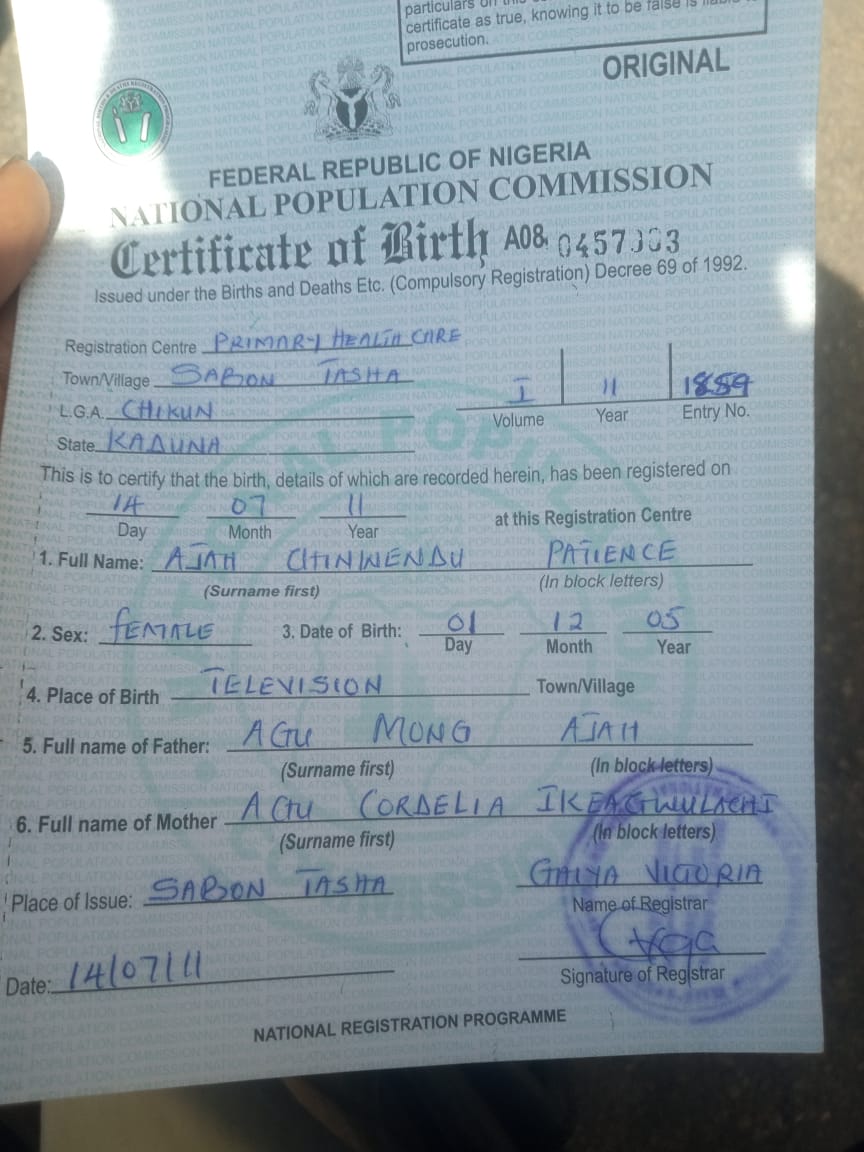 particulars on this
certificate as true, knowing it to be false is liable to
prosecution.
ORIGINAL
FEDERAL REPUBLIC OF NIGERIA
NATIONAL POPULATION COMMISSION
Certificate of Birth A08
Issued under the Births and Deaths Etc. (Compulsory Registration) Decree 69 of 1992.
Registration Centre PRIMARY HEALTH CARE
Town/Village SABON TASHA
L.G.A. CHIKUN
I 11 1859
Volume Year Entry No.
State KADUNA
This is to certify that the birth, details of which are recorded herein, has been registered on
14 07 11
Day Month Year at this Registration Centre
1. Full Name: AJAH CHINWENDU PATIENCE
(Surname first) (In block letters)
2. Sex: FEMALE 3. Date of Birth: 01 12 05
Day Month Year
4. Place of Birth TELEVISION Town/Village
5. Full name of Father: AGU MONG AJAH
(Surname first) (In block letters)
6. Full name of Mother AGU CORDELIA IKEAGWULACHI
(Surname first) (In block letters)
Place of Issue: SABON TASHA GAIYA VICTORIA
Name of Registrar
Date: 14/07/11
Signature of Registrar
NATIONAL REGISTRATION PROGRAMME